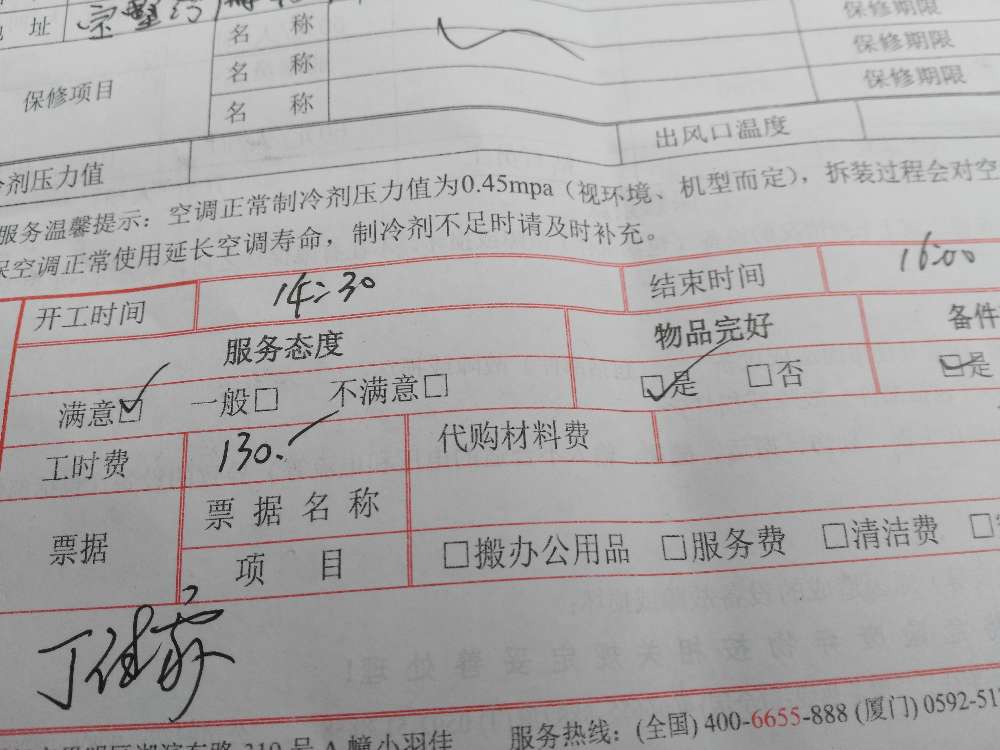 址
名 称 保修期限
保修项目 名 称 保修期限
名 称 保修期限
剂压力值 出风口温度
服务温馨提示：空调正常制冷剂压力值为0.45mpa（视环境、机型而定），拆装过程会对空
保空调正常使用延长空调寿命，制冷剂不足时请及时补充。
开工时间 14:30 结束时间 16:00
服务态度 物品完好 备件
满意☑ 一般□ 不满意□ ☑是 □否 ☑是
工时费 130. 代购材料费
票据 票据名称
项 目 □搬办公用品 □服务费 □清洁费 □
丁
服务热线：(全国) 400-6655-888 (厦门) 0592-51